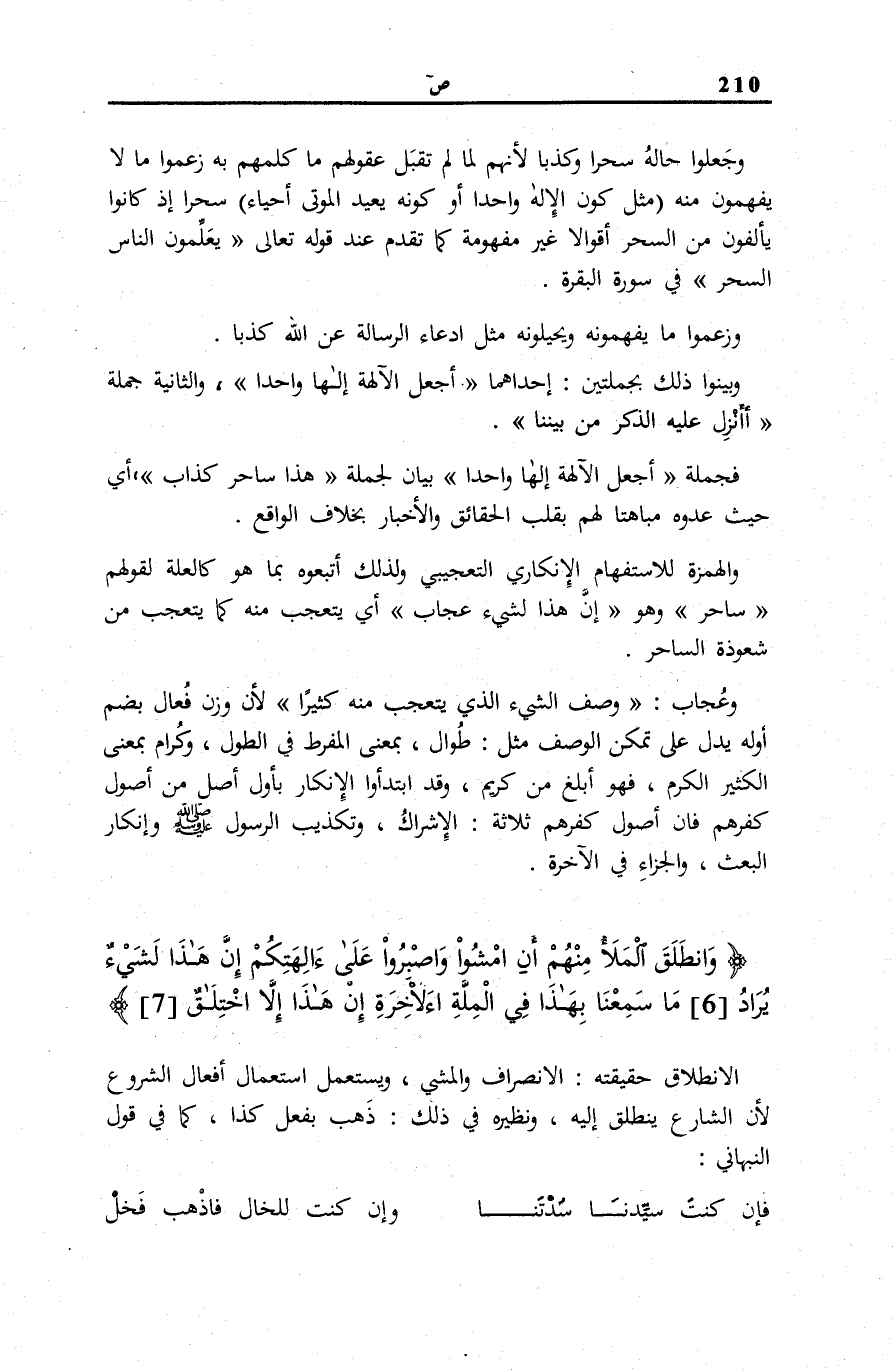 210
صۤ
وجَعلوا حالهُ سحرا وكذبا لأنهم لما لم تقبَل عقولهم ما كلمهم به زعموا ما لا
يفهمون منه (مثل كون الإلهٰ واحدا أو كونه يعيد الموتى أحياء) سحرا إذ كانوا
يألفون من السحر أقوالا غير مفهومة كما تقدم عند قوله تعالى « يعَلِّمون الناس
السحر » في سورة البقرة .
وزعموا ما يفهمونه ويحيلونه مثل ادعاء الرسالة عن الله كذبا .
وبينوا ذلك بجملتين : إحداهما « أجعل الآلهة إلـٰها واحدا » ، والثانية جملة
« أأُنْزِل عليه الذكر من بيننا » .
فجملة « أجعل الآلهة إلهٰا واحدا » بيان لجملة « هذا ساحر كذاب »،أي
حيث عدوه مباهتا لهم بقلب الحقائق والأخبار بخلاف الواقع .
والهمزة للاستفهام الإنكاري التعجيبي ولذلك أتبعوه بما هو كالعلة لقولهم
« ساحر » وهو « إنَّ هذا لشيء عجاب » أي يتعجب منه كما يتعجب من
شعوذة الساحر .
وعُجاب : « وصف الشيء الذي يتعجب منه كثيرًا » لأن وزن فُعال بضم
أوله يدل على تمكن الوصف مثل : طُوال ، بمعنى المفرط في الطول ، وكُرام بمعنى
الكثير الكرم ، فهو أبلغ من كريم ، وقد ابتدأوا الإنكار بأول أصل من أصول
كفرهم فان أصول كفرهم ثلاثة : الإشراكُ ، وتكذيب الرسول ﷺ وإنكار
البعث ، والجزاءِ في الآخرة .
﴿ وَانطَلَقَ ٱلْمَلَأُ مِنْهُمْ أَنِ امْشُواْ وَاصْبِرُواْ عَلَىٰ ءَالِهَتِكُمْ إِنَّ هَـٰذَا لَشَيْءٌ
يُرَادُ [6] مَا سَمِعْنَا بِهَـٰذَا فِي الْمِلَّةِ اءَلَاْخِرَةِ إِنْ هَـٰذَا إِلَّا اخْتِلَـٰقٌ [7] ﴾
الانطلاق حقيقته : الانصراف والمشي ، ويستعمل استعمال أفعال الشروع
لأن الشارع ينطلق إليه ، ونظيره في ذلك : ذَهب بفعل كذا ، كما في قول
النبهاني :
فإن كنتَ سيِّدنـَـا سُدْتَنــــــا وإن كنت للخال فاذْهب فَخلْ